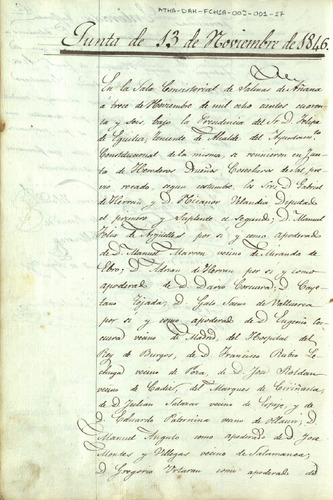 ATHA-DAH-FCHSA-002-001-27
Junta de 13 de Noviembre de 1846.
En la Sala Consistorial de Salinas de Añana
a trece de Noviembre de mil ocho cientos cuaren
ta y seis, bajo la Presidencia del Sr. D. Felipe
de Eguiluz, teniente de Alcalde del Ayuntamto
Constitucional de la misma, se reunieron en Jun
ta de Herederos Dueños
vio recado, segun costumbre, los Sres. D. Gabriel
de Herrán, y D. Nicanor Ulandia Diputado
el primero y Suplente el Segundo; D. Manuel
Felix de Argüelles por sí y como apoderado
de D. Manuel Marron vecino de Miranda de
Ebro; D. Adrian de Herran por sí y como
apoderado de D. Dario Corcuera; D. Caye
tano Tejada; D. Galo Saenz de Valluerca
por sí y como apoderado de D. Eugenio Cor
cuera vecino de Madrid, del Hospital del
Rey de Burgos, de D. Francisco Rubio
vecino de de D. José Roldan
vecino de Cadiz, del Marques de Ciriñuela,
de D. Julian Salazar vecino de Espejo y de
D. Eduardo Paternina vecino de Ollauri; D.
Manuel Angulo como apoderado de D. José
Montes y Villegas vecino de Salamanca;
D. Gregorio como apoderado de